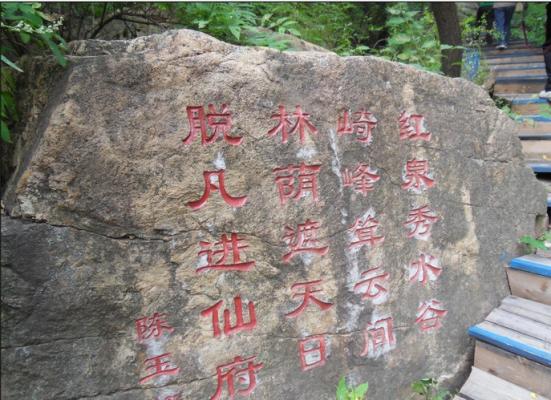 红泉秀水谷
崎峰耸云间
林荫遮天日
脱凡进仙府
陈玉